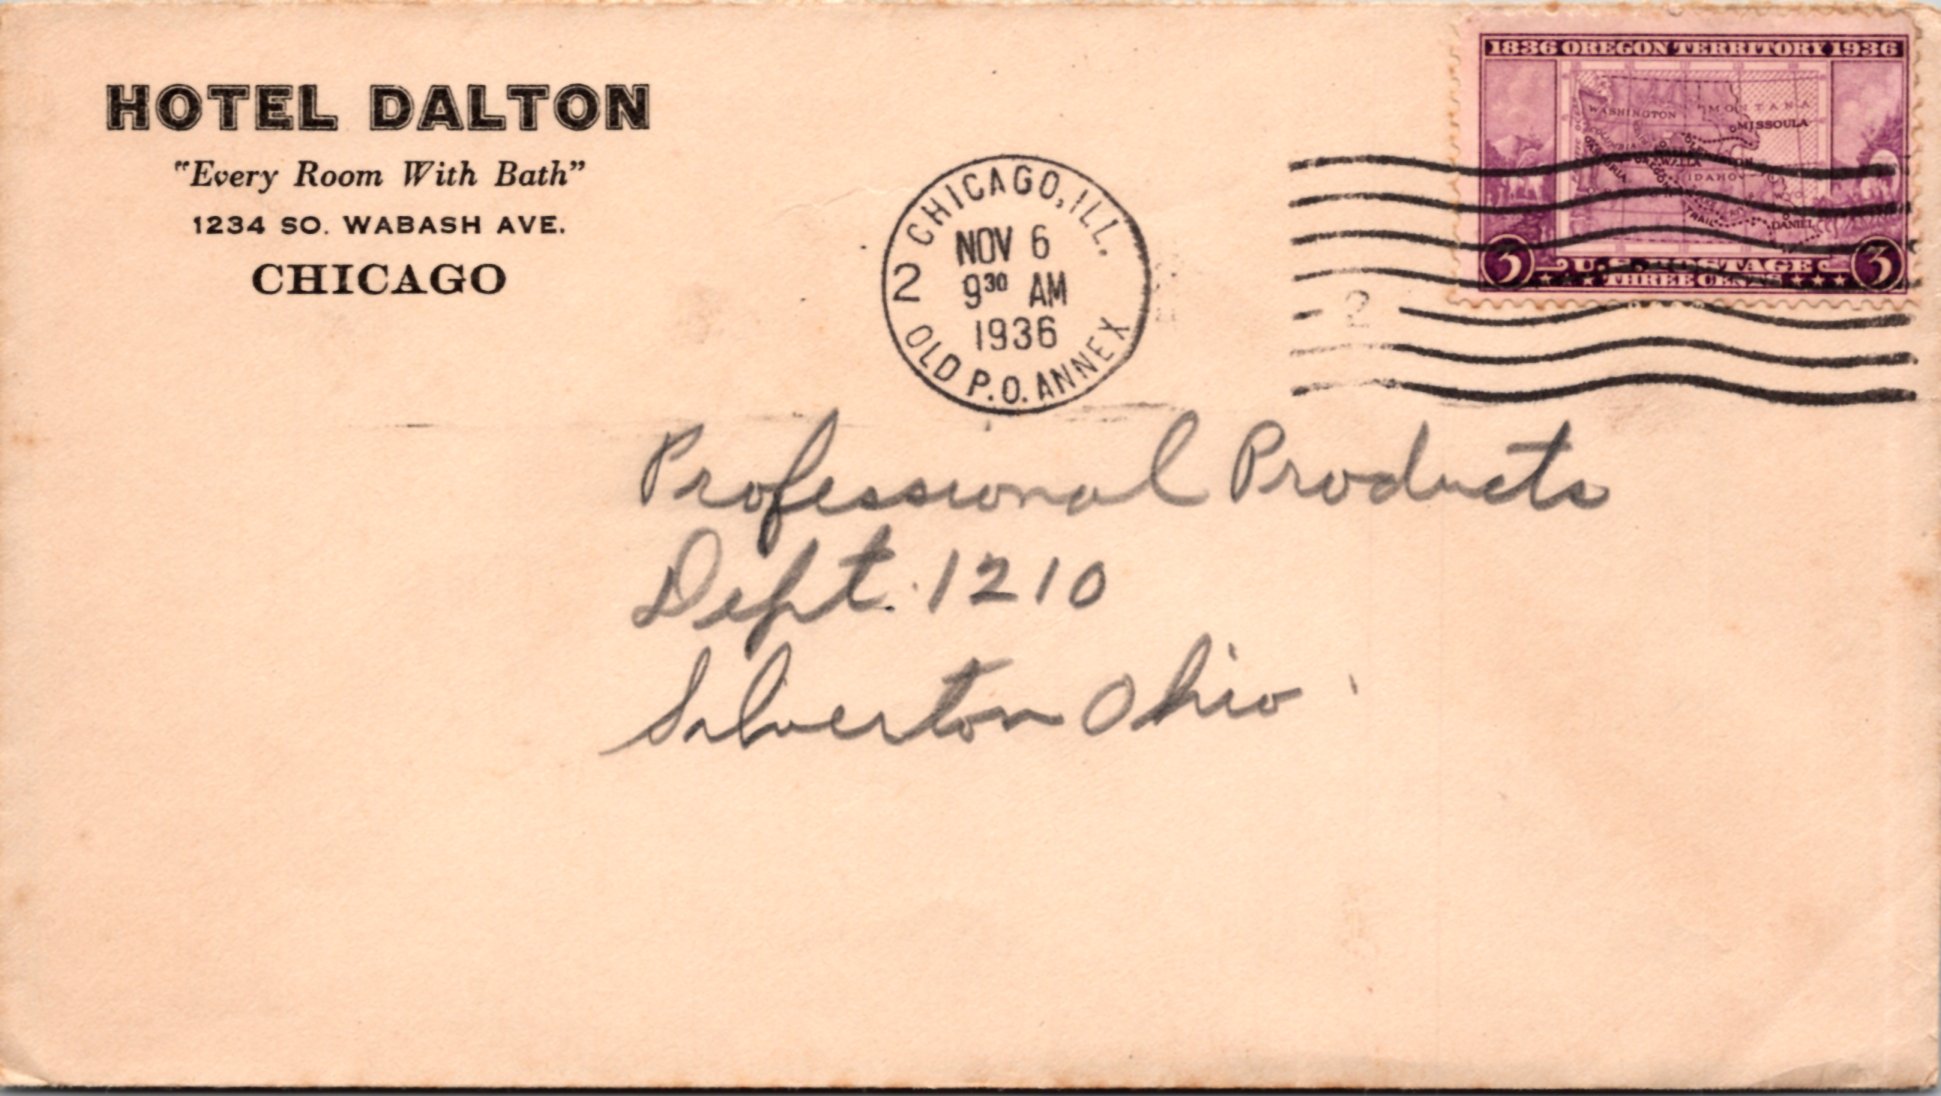 HOTEL DALTON
"Every Room With Bath"
1234 SO. WABASH AVE.
CHICAGO
CHICAGO, ILL.
NOV 6
9 30 AM
1936
2
OLD P.O. ANNEX
1836 OREGON TERRITORY 1936
WASHINGTON
MONTANA
MISSOULA
IDAHO
TRAIL
DANIEL
3 U.S. POSTAGE 3
THREE CENTS
2
Professional Products
Dept. 1210
Silverton Ohio